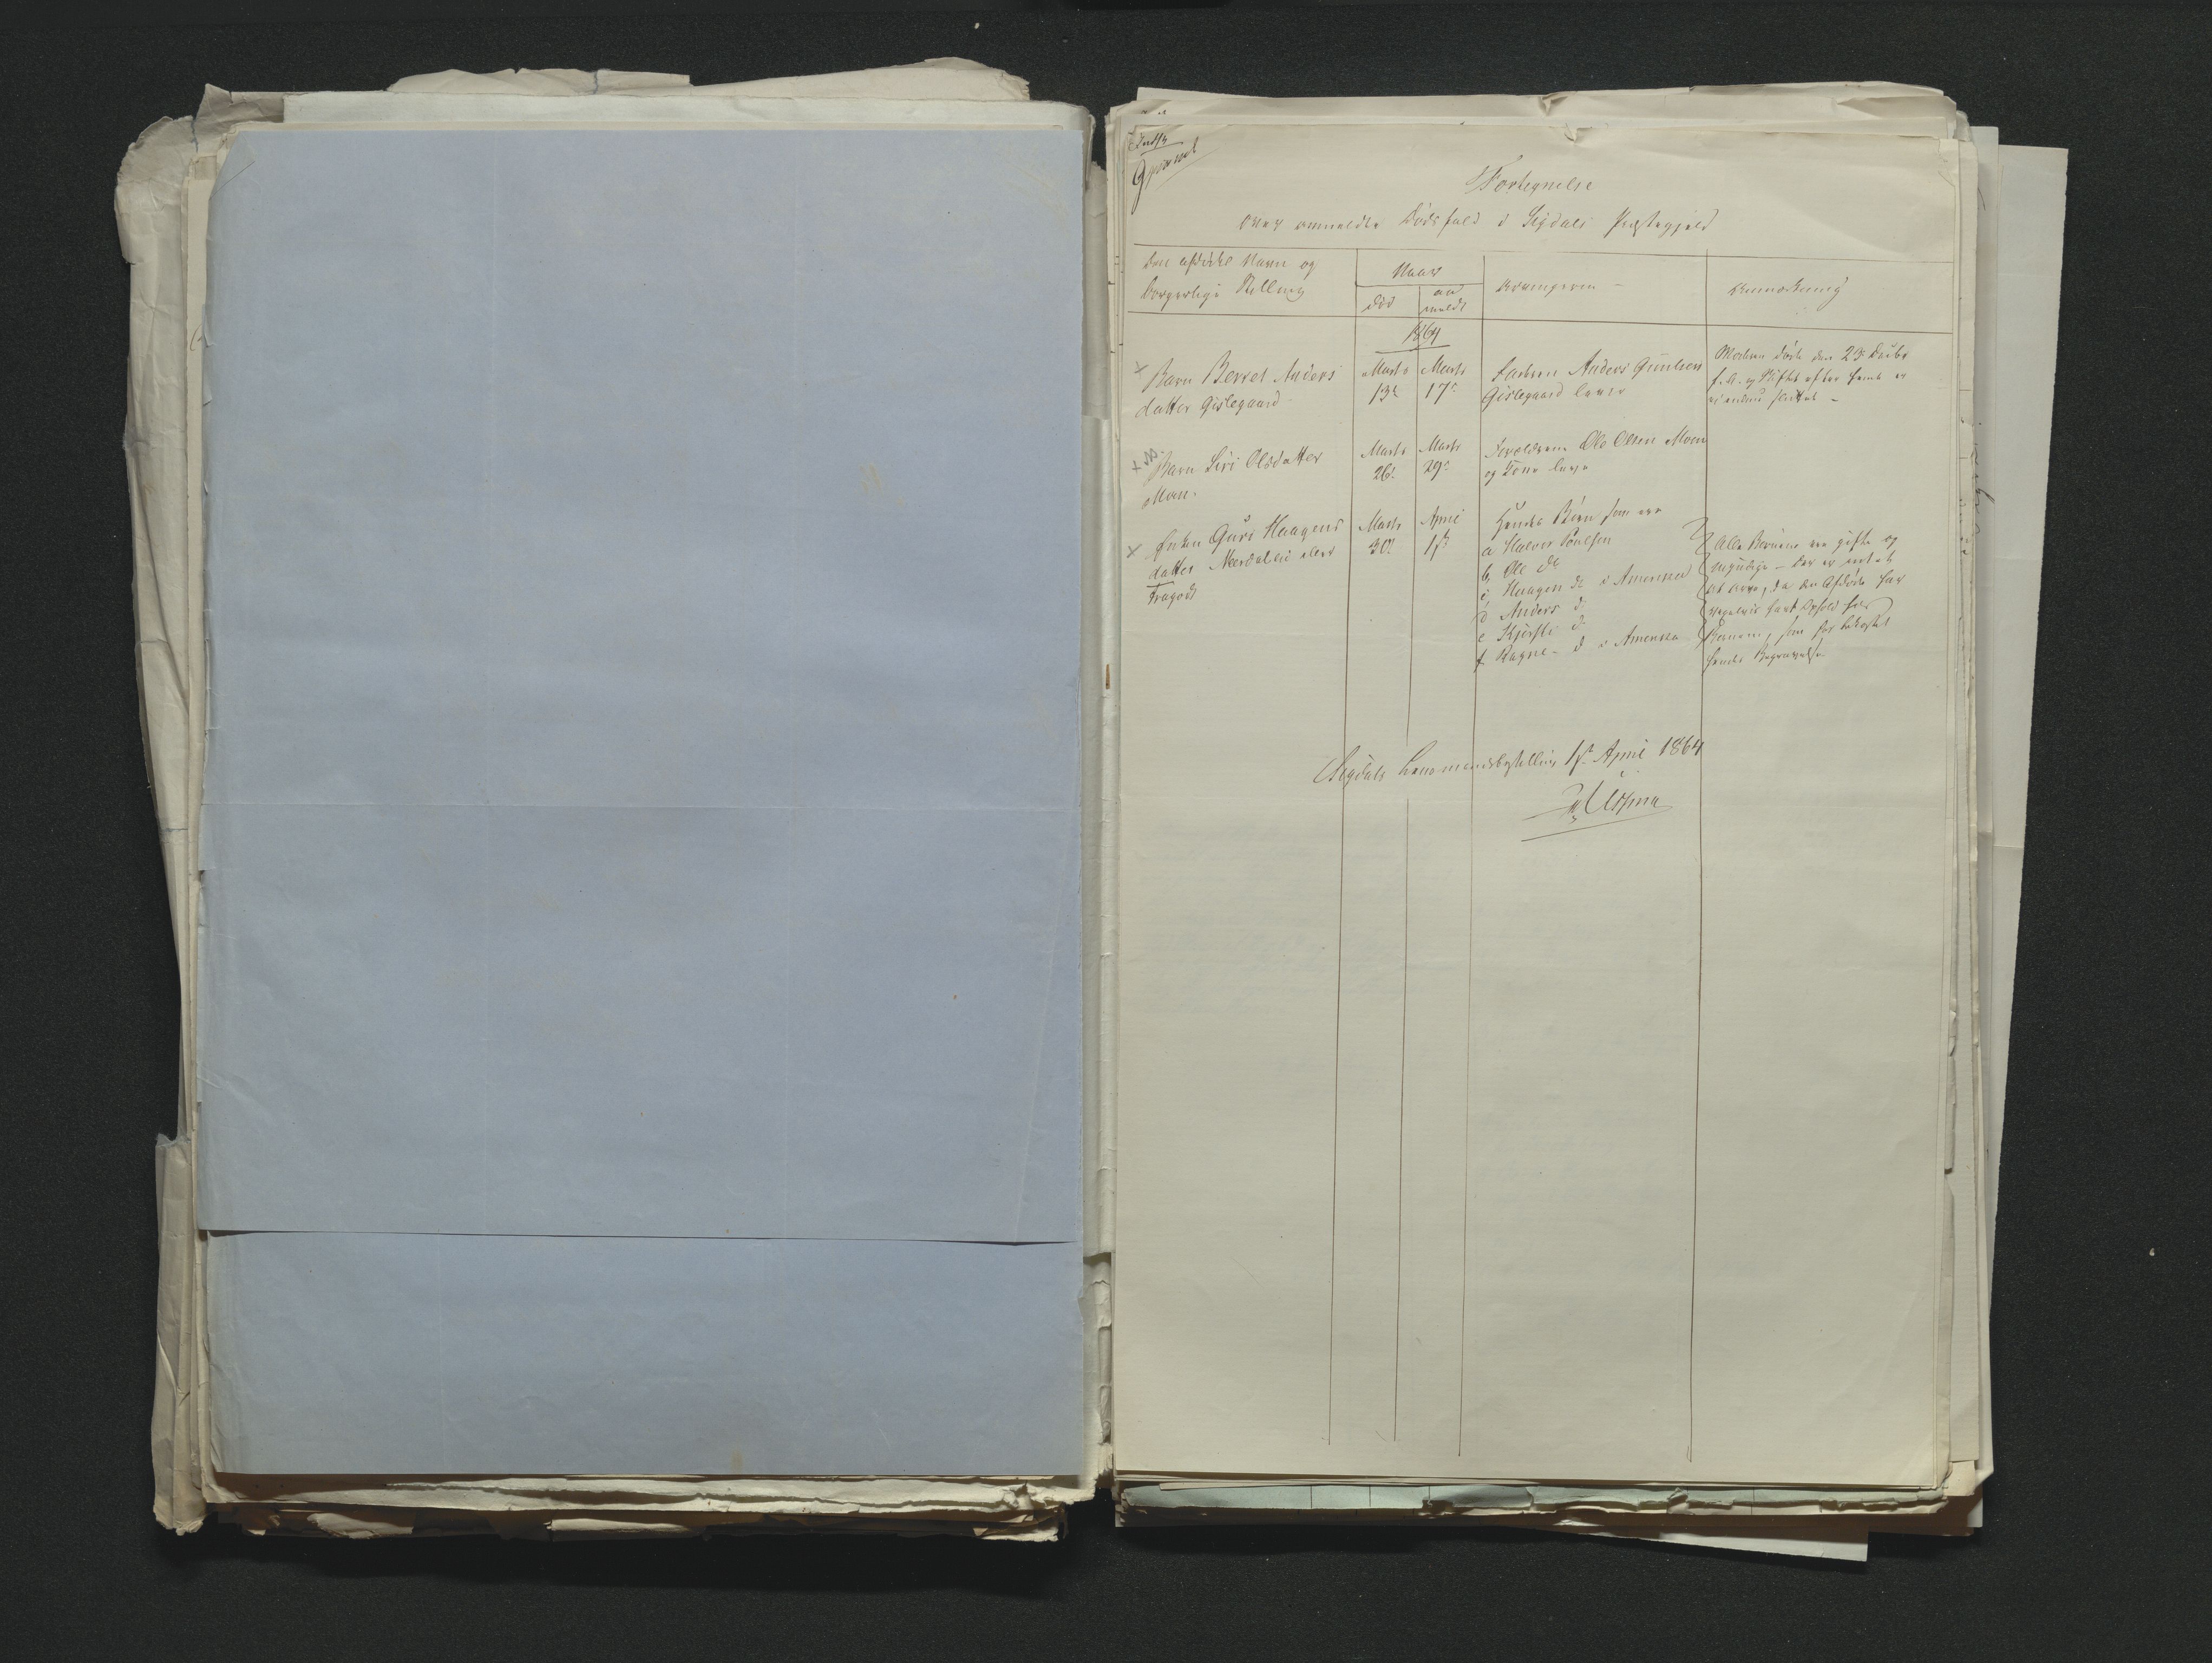 Fortegnelse
over anmeldte Dødsfald i Sigdals Præstegjeld
Den afdødes Navn og
borgerlige Stilling
Naar
død
an
meldt
Arvingerne
Anmærkning
1864
Barn Berret Anders
datter Gislegaard
Marts
13de
Marts
17de
Faderen Anders Gunulsen
Gislegaard lever
Moderen døde den 23de Decbr
f. A. og Skiftet efter hende er
ei endnu sluttet
Barn Siri Olsdatter
Moen.
Marts
26.
Marts
29.
Forældrene Ole Olsen Moen
og Tone lever
Enken Guri Haagens
datter
Marts
30.
April
1ste
Hendes Børn som ere
a Halvor Poulsen
b, Ole do
c, Haagen do i Amerika
d Anders d.
e Kjersti d.
f Ragne d i Amerika
Alle Børnene ere gifte og
myndige - Der er intet
at arve, da den Afdøde har
havt Ophold hos
Børnene, som har bekostet
hendes Begravelse
Sigdals Lensmandsbestilling 1ste April 1864